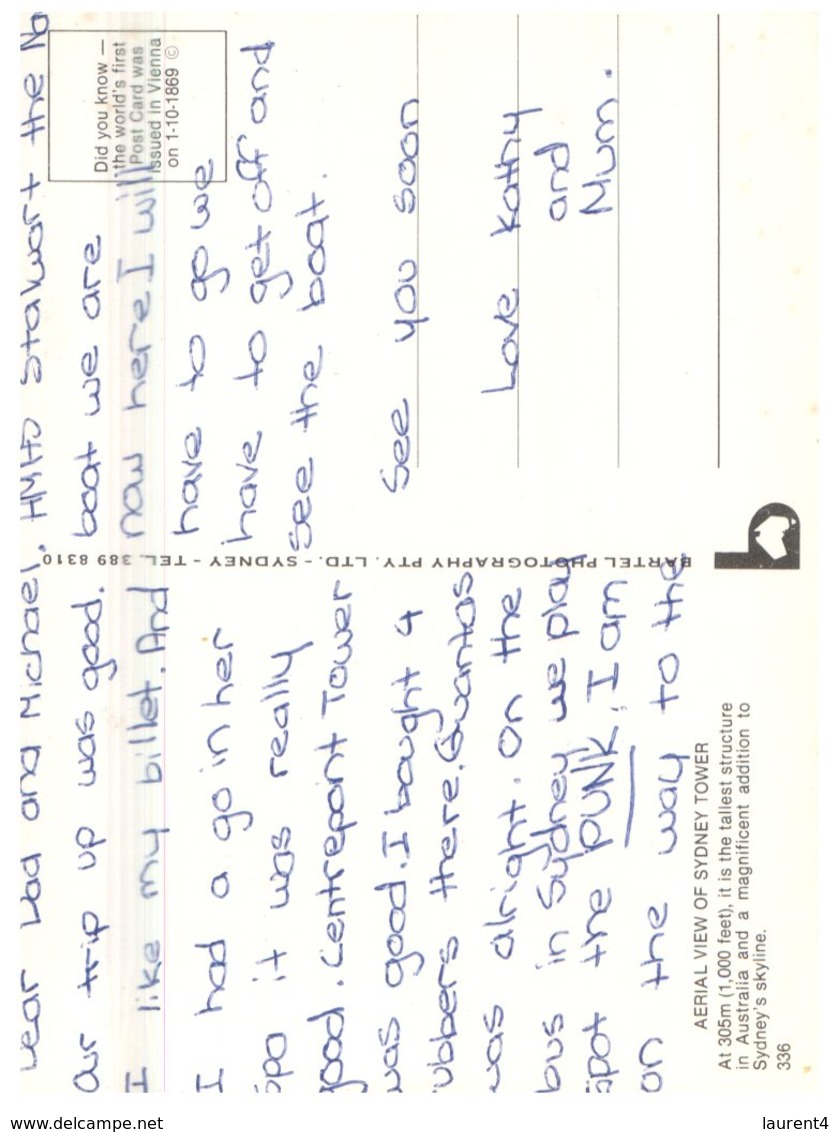 Dear Dad and Michael,
Our trip up was good.
I like my billet. And
I had a go in her
spa it was really
good. Centrepoint Tower
was good. I bought 4
rubbers there. Quantas
was alright. On the
bus in Sydney we play
spot the PUNK. I am
on the way to the
HMHS Stalwart the
boat we are
now here I will
have to go we
have to get off and
see the boat.
See you soon
Love Kathy
and
Mum.
Did you know —
the world's first
Post Card was
issued in Vienna
on 1-10-1869 ©
BARTEL PHOTOGRAPHY PTY. LTD. - SYDNEY - TEL. 389 8310
AERIAL VIEW OF SYDNEY TOWER
At 305m (1,000 feet), it is the tallest structure
in Australia and a magnificent addition to
Sydney's skyline.
336
www.delcampe.net
laurent4